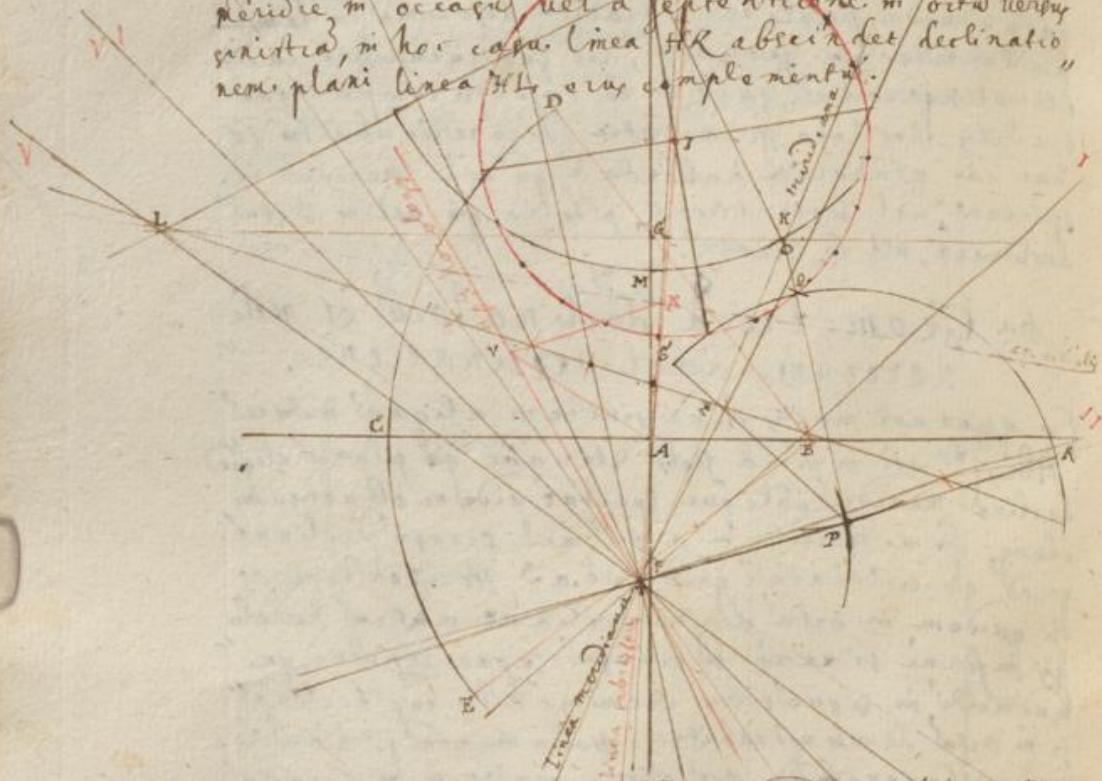 meridie, in occasu vel a septentrione in ortu versus
sinistrā, in hoc casu linea HK abscindet declinatio
nem plani linea HL eius complementū.
VI
D
V
I
meridiana
L
G
K
O
M
K
Q
V
S
N
II
C
A
B
R
P
F
E
linea meridiana
linea substylaris